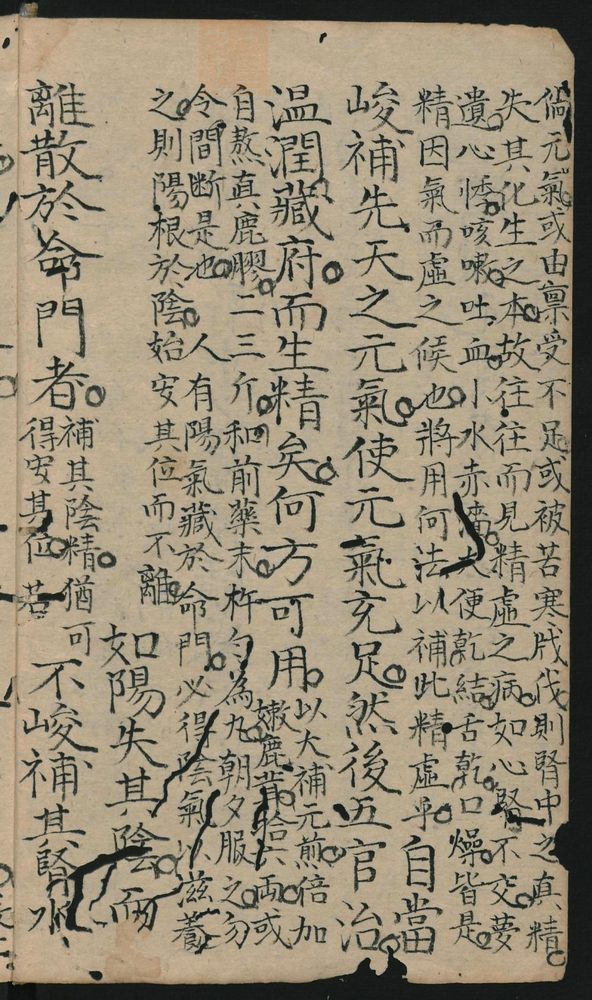 倘元氣或由禀受不足或被苦寒戕伐則腎中之真精
失其化生之本故往往而見精虛之病如心腎不交夢
遺心悸咳嗽吐血小水赤濇大便乾結舌乾口燥皆是
精因氣而虛之候也將用何法以補此精虛乎自當
峻補先天之元氣使元氣充足然後五官治
温潤藏府而生精矣何方可用
以大補元煎倍加
嫩鹿茸拾六兩或
自熬真鹿膠二三斤和前藥末杵勻為丸朝夕服之勿
令間斷是也 人有陽氣藏於命門必得陰氣以滋養
之則陽根於陰始安其位而不離 如陽失其陰而
離散於命門者
補其陰精猶可
得安其位若
不峻補其腎水